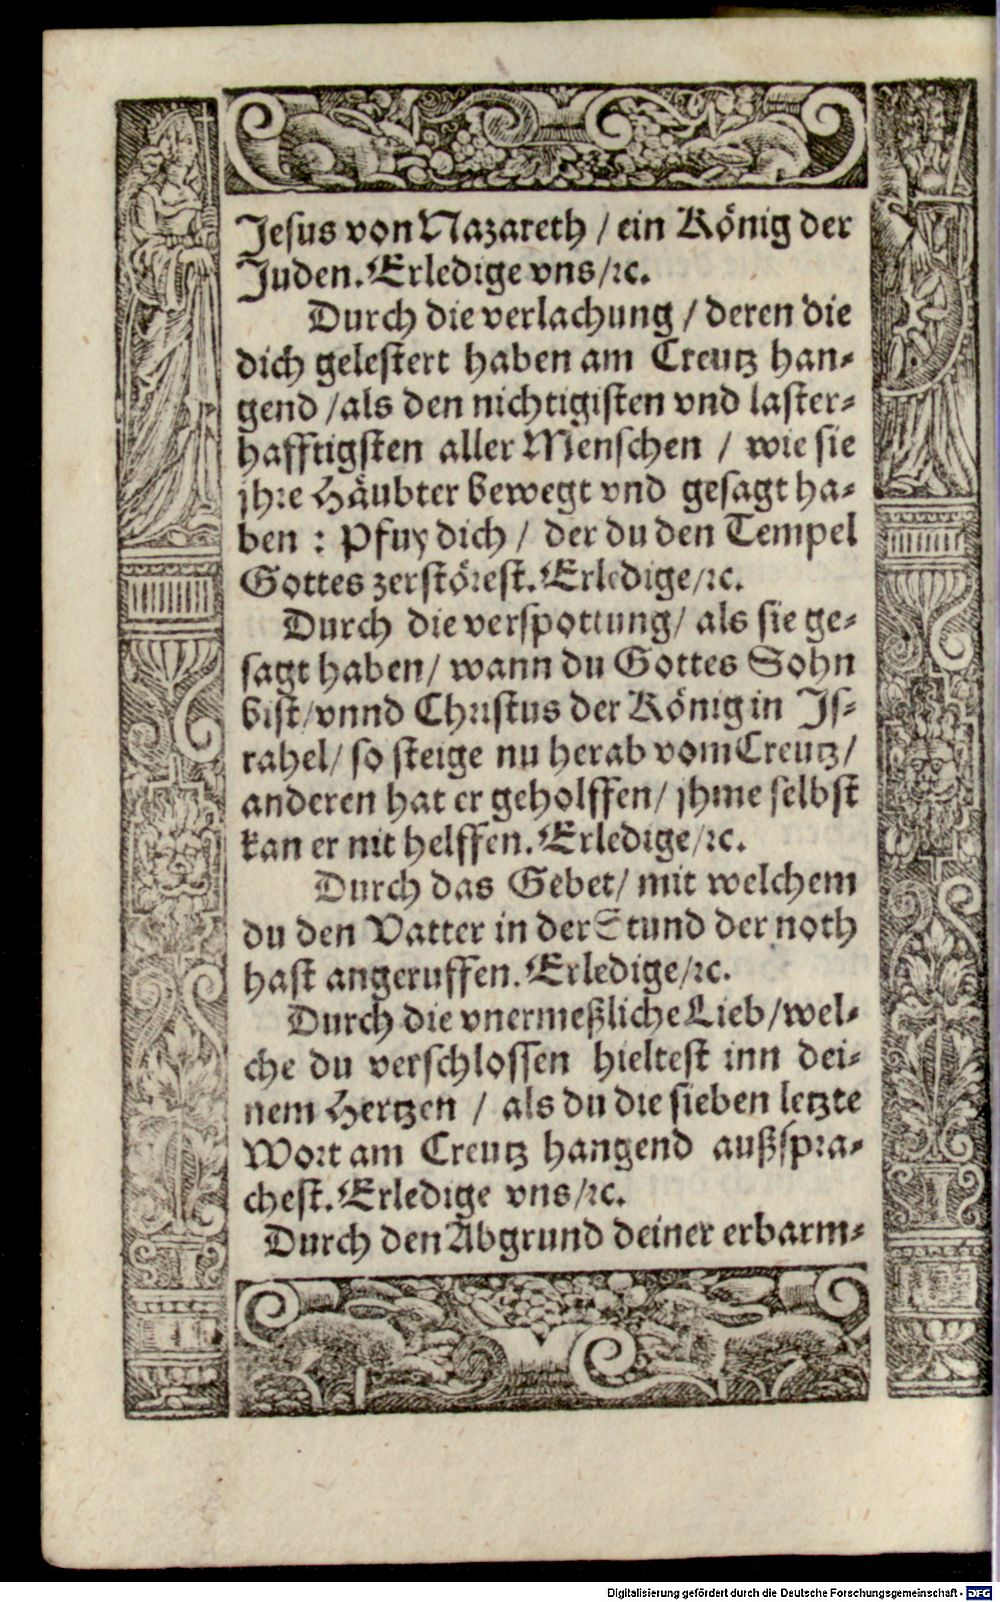 Jesus von Nazareth / ein König der
Juden. Erledige vns / ꝛc.
Durch die verlachung / deren die
dich gelestert haben am Creutz han⸗
gend / als den nichtigisten vnd laster⸗
hafftigsten aller Menschen / wie sie
jhre Häubter bewegt vnd gesagt ha⸗
ben : Pfuy dich / der du den Tempel
Gottes zerstörest. Erledige / ꝛc.
Durch die verspottung / als sie ge⸗
sagt haben / wann du Gottes Sohn
bist / vnnd Christus der König in Is⸗
rahel / so steige nu herab vom Creutz /
anderen hat er geholffen / jhme selbst
kan er nit helffen. Erledige / ꝛc.
Durch das Gebet / mit welchem
du den Vatter in der Stund der noth
hast angeruffen. Erledige / ꝛc.
Durch die vnermeßliche Lieb / wel⸗
che du verschlossen hieltest inn dei⸗
nem Hertzen / als du die sieben letzte
Wort am Creutz hangend außspra⸗
chest. Erledige vns / ꝛc.
Durch den Abgrund deiner erbarm⸗
Digitalisierung gefördert durch die Deutsche Forschungsgemeinschaft - DFG